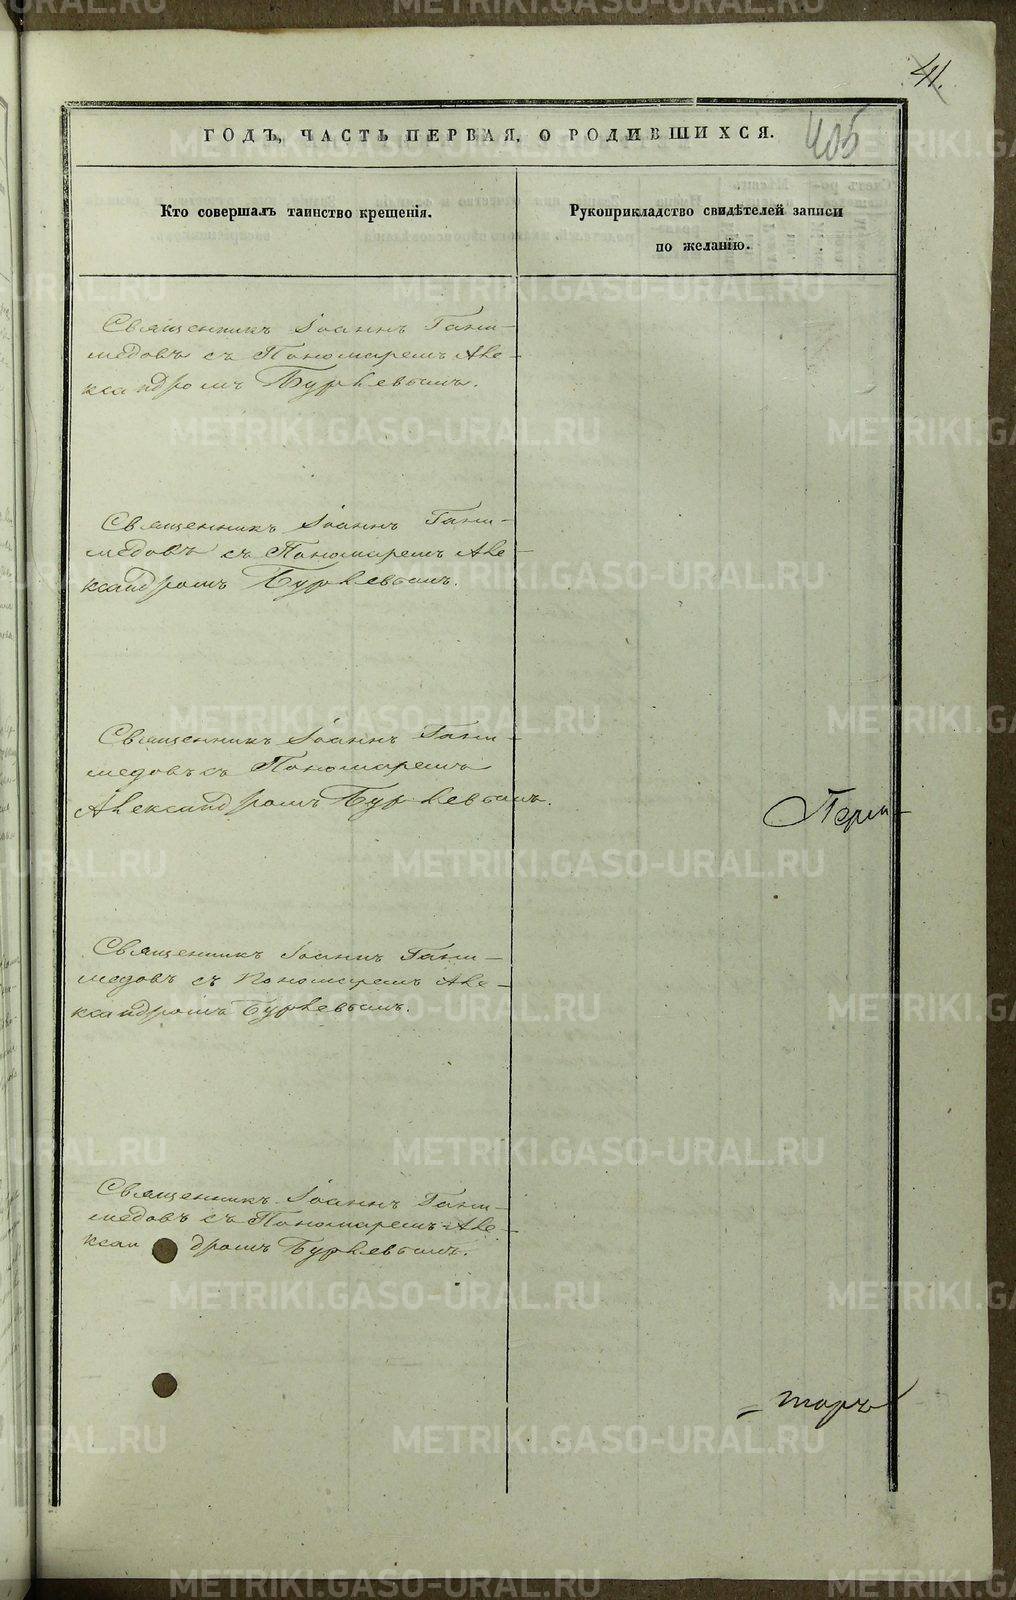 41.
405
ГОДЪ, ЧАСТЬ ПЕРВАЯ, О РОДИВШИХСЯ.
Кто совершалъ таинство крещенія.
Рукоприкладство свидѣтелей записи
по желанію.
Священникъ Іоаннъ Гани-
медовъ съ Пономаремъ Але-
ксандромъ Бурлевымъ.
Священникъ Іоаннъ Гани-
медовъ съ Пономаремъ Але-
ксандромъ Бурлевымъ.
Священникъ Іоаннъ Гани-
медовъ съ Пономаремъ
Александромъ Бурлевымъ.
Священникъ Іоаннъ Гани-
медовъ съ Пономаремъ Але-
ксандромъ Бурлевымъ.
Священникъ Іоаннъ Гани-
медовъ съ Пономаремъ Але-
ксандромъ Бурлевымъ.
METRIKI.GASO-URAL.RU